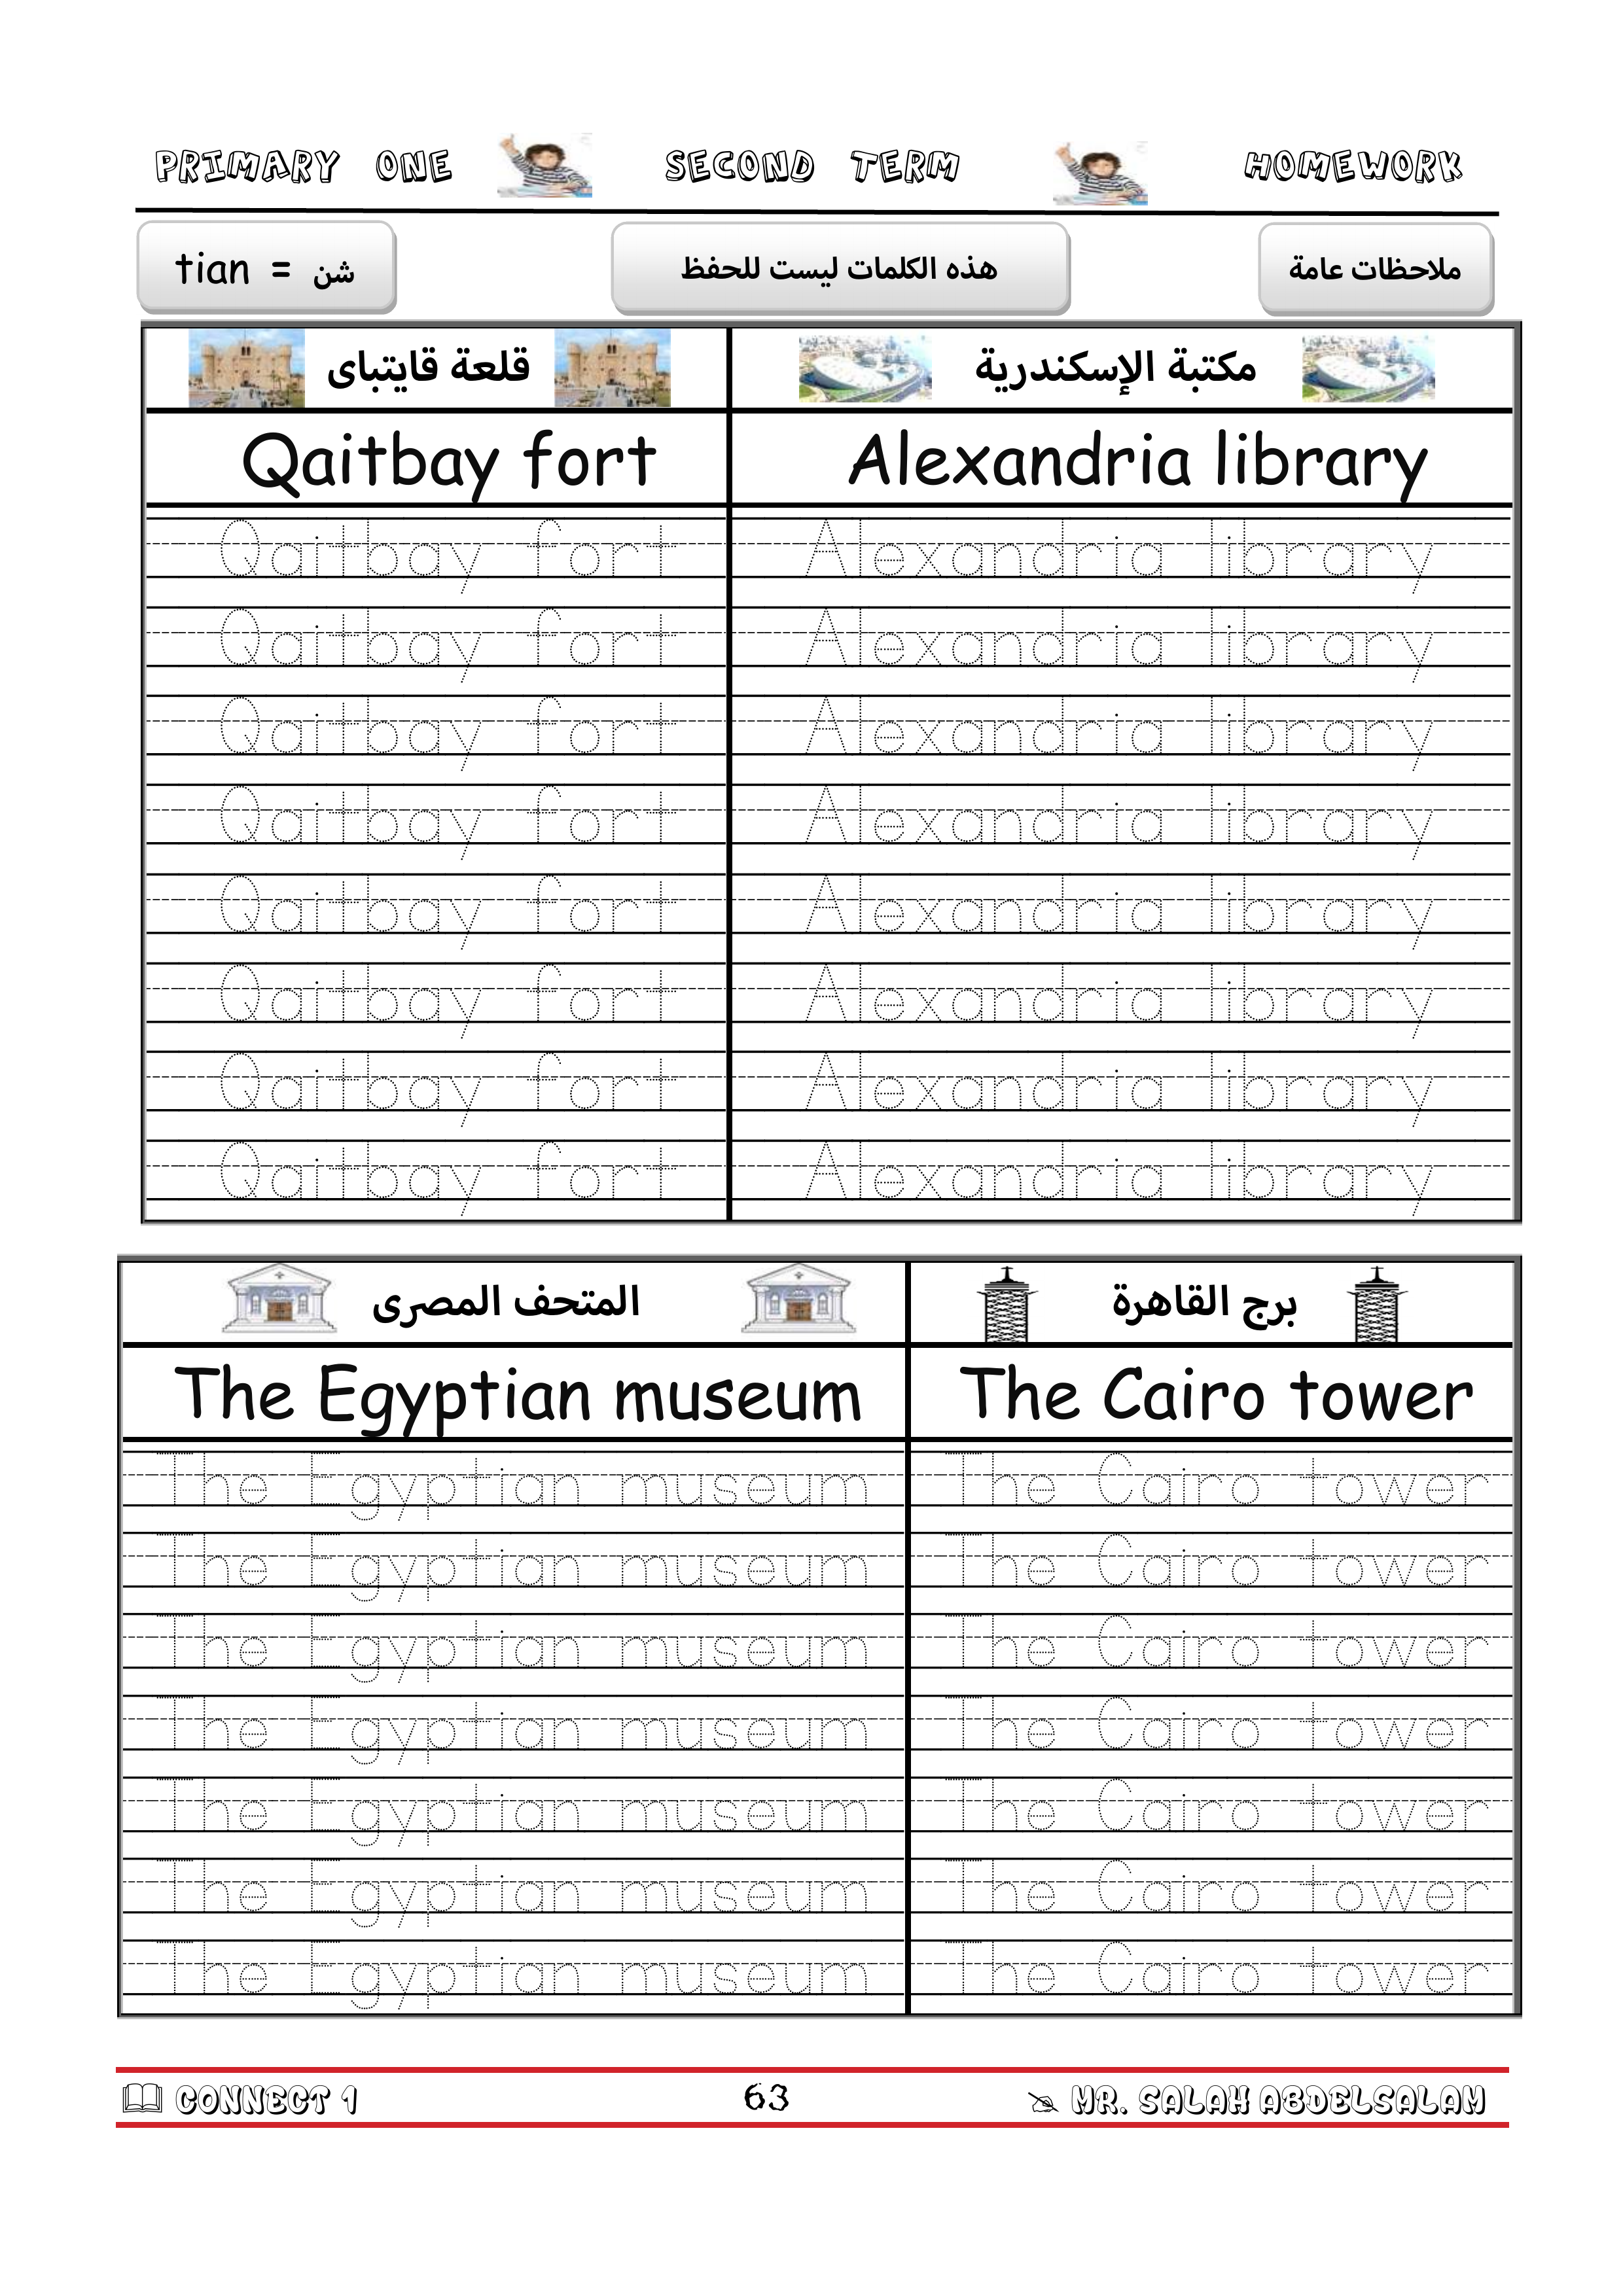 PRIMARY ONE SECOND TERM HOMEWORK
tian = شن هذه الكلمات ليست للحفظ ملاحظات عامة
قلعة قايتباى مكتبة الإسكندرية
Qaitbay fort Alexandria library
Qaitbay fort Alexandria library
Qaitbay fort Alexandria library
Qaitbay fort Alexandria library
Qaitbay fort Alexandria library
Qaitbay fort Alexandria library
Qaitbay fort Alexandria library
Qaitbay fort Alexandria library
Qaitbay fort Alexandria library
المتحف المصرى برج القاهرة
The Egyptian museum The Cairo tower
The Egyptian museum The Cairo tower
The Egyptian museum The Cairo tower
The Egyptian museum The Cairo tower
The Egyptian museum The Cairo tower
The Egyptian museum The Cairo tower
The Egyptian museum The Cairo tower
The Egyptian museum The Cairo tower
CONNECT 1 63 MR. SALAH ABDELSALAM